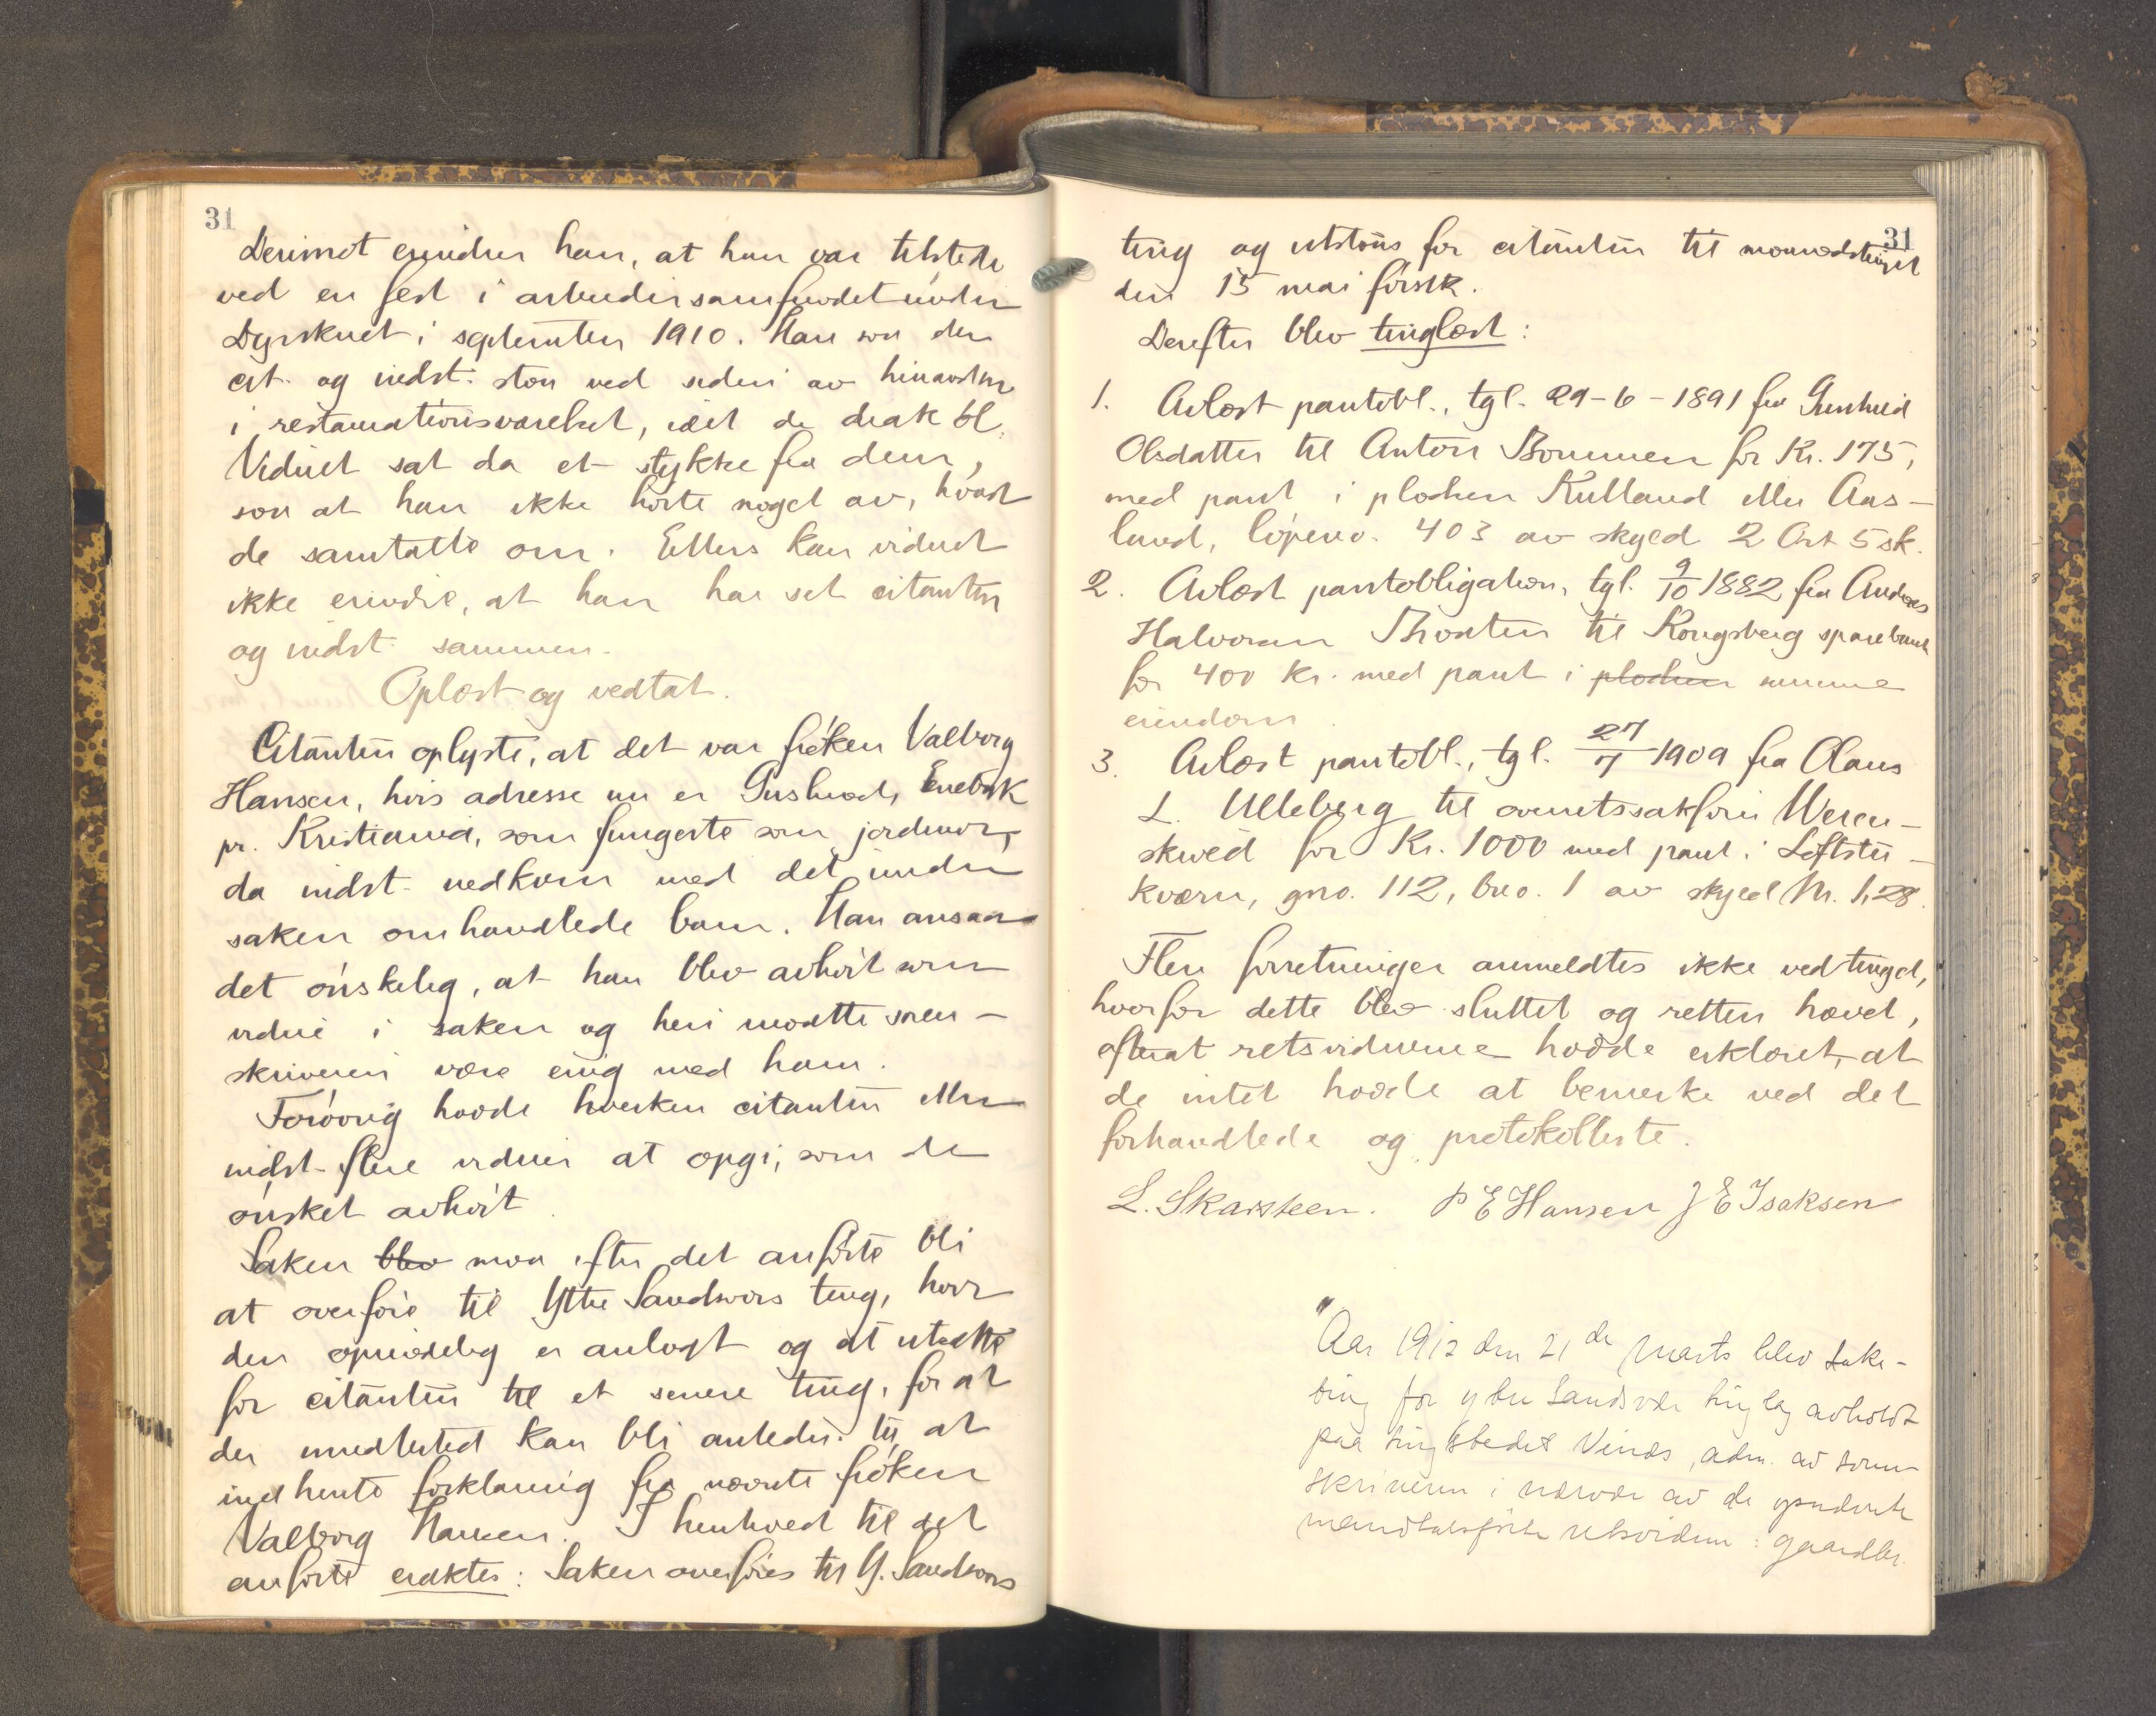 31
Derimot erindrer han, at han var tilstede
ved en fest i arbeidersamfundet under
Dyrskuet i september 1910. Han saa der
cit. og indst. staa ved siden av hinanden
i restaurationsværelset, idet de drak øl.
Vidnet sat da et stykke fra dem,
saa at han ikke hørte noget av, hvad
de samtalte om. Ellers kan vidnet
ikke erindre, at han har set citanten
og indst. sammen.
Oplæst og vedtat.
Citanten oplyste, at det var frøken Valborg
Hansen, hvis adresse nu er Enebak
pr. Kristiania, som fungerte som jordmor,
da indst. nedkom med det under
saken omhandlede barn. Han ansaa
det ønskelig, at hun blev avhørt som
vidne i saken og heri maatte soren-
skriveren være enig med ham.
Forøvrig hadde hverken citanten eller
indst. flere vidner at opgi, som de
ønsket avhørt.
Saken blev maa efter det anførte bli
at overføre til Ytre Sandsvær ting, hvor
den oprindelig er anlagt og at utsætte
for citanten til et senere ting, for at
der imidlertid kan bli anledn. til at
indhente forklaring fra nævnte frøken
Valborg Hansen. I henhold til det
anførte eraktes: Saken overføres til Y. Sandsvær
31
ting og utstaar for citanten til maanedstinget
den 15 mai førstk.
Derefter blev tinglæst:
1. Avlæst pantobl., tgl. 29-6-1891 fra Gunhild
Olsdatter til Anton Bommen for Kr. 175,
med pant i pladsen Kulland eller Aas-
land, løpeno. 403 av skyld 2 Ort 5 sk.
2. Avlæst pantobligation, tgl. 9/10 1882 fra Andreas
Halvorsen til Kongsberg sparebank
for 400 kr. med pant i pladsen samme
eiendom.
3. Avlæst pantobl., tgl. 27/7 1909 fra Olaus
L. Ulleberg til overretssakfører Weren-
skiold for Kr. 1000 med pant i Loftstu-
kværn, gno. 112, bno. 1 av skyld M. 1,28.
Flere forretninger anmeldtes ikke ved tinget,
hvorfor dette blev sluttet og retten hævet,
efterat retsvidnerne hadde erklæret, at
de intet hadde at bemerke ved det
forhandlede og protokollerte.
L. Skarsteen. P E Hansen J E Isaksen
"Aar 1912 den 21de Marts blev sake-
ting for ytre Sandsvær tinglag avholdt
paa tingstedet Vinæs, adm. av soren-
skriveren i nærvær av de opnævnte
mandtalsførte retsvidner: gaardbr.